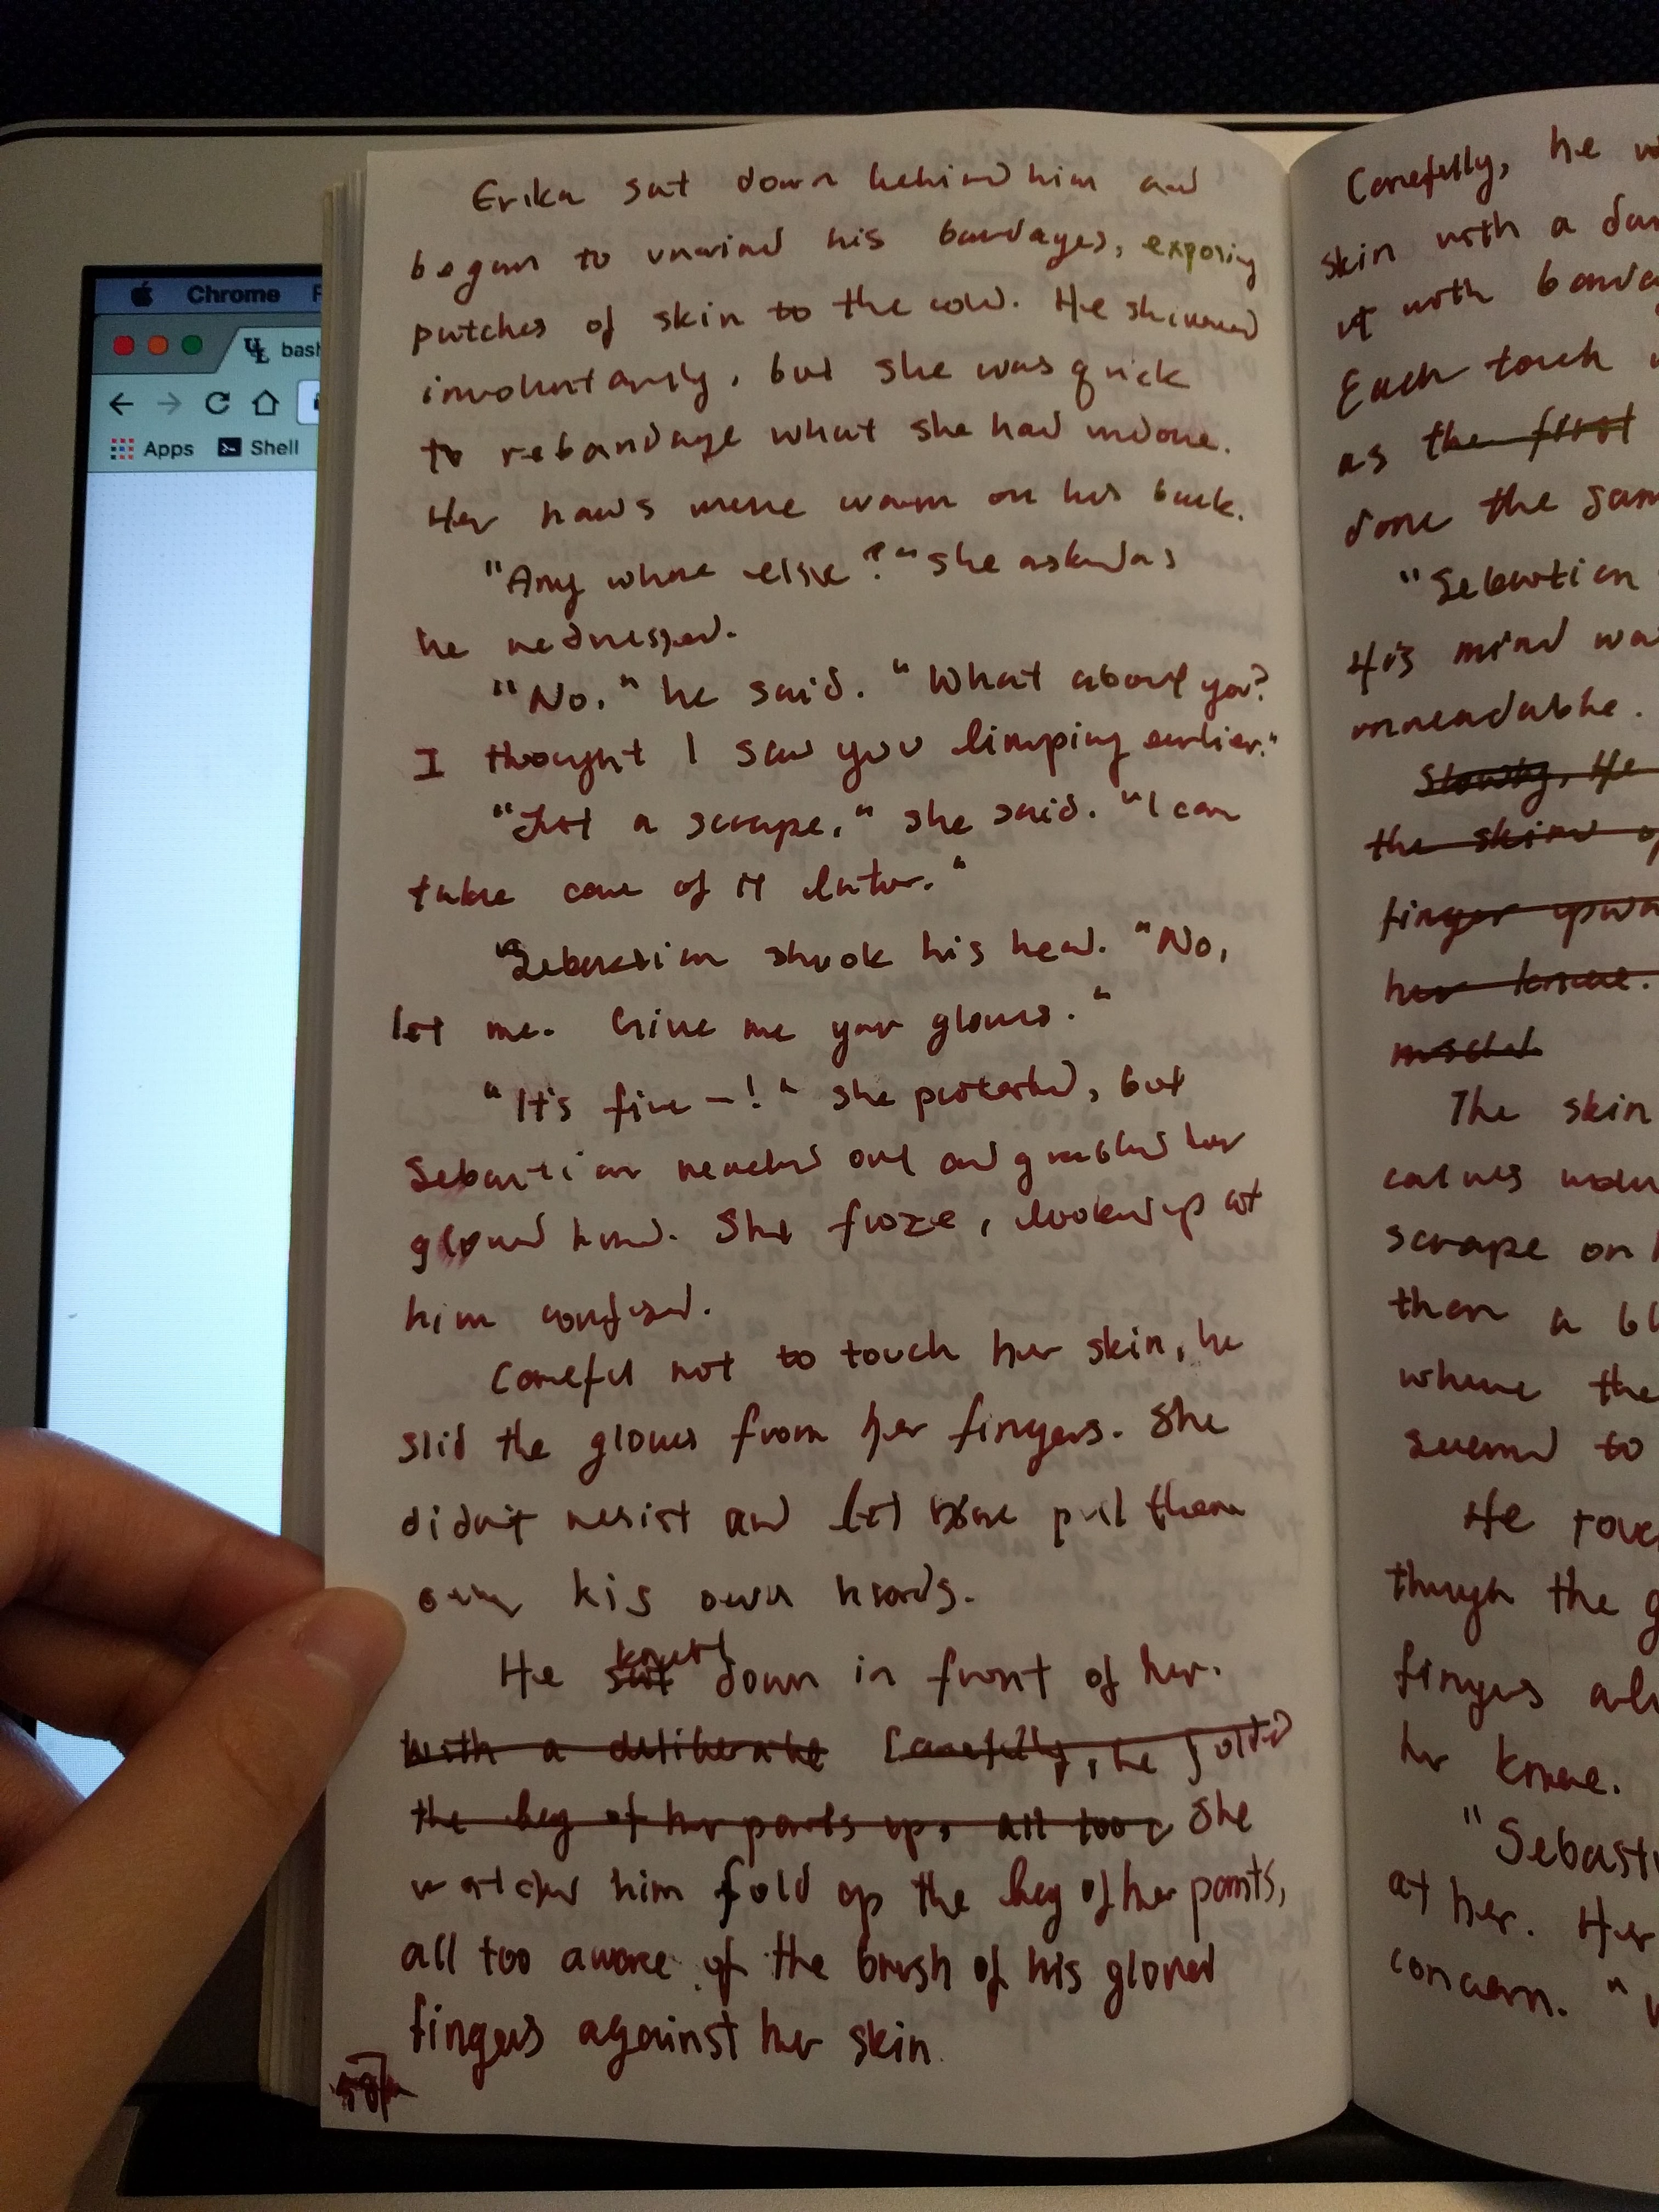 Chrome F
bash
Apps Shell
Erika sat down behind him and
began to unwind his bandages, exposing
patches of skin to the cold. He shivered
involuntarily, but she was quick
to rebandage what she had undone.
Her hands were warm on his back.
"Any where else?" she asked as
he redressed.
"No," he said. "What about you?
I thought I saw you limping earlier."
"Just a scrape," she said. "I can
take care of it later."
Sebastian shook his head. "No,
let me. Give me your gloves."
"It's fine—!" she protested, but
Sebastian reached out and grabbed her
gloved hand. She froze, looked up at
him confused.
Careful not to touch her skin, he
slid the gloves from her fingers. She
didn't resist and let him pull them
over his own hands.
knelt
He sat down in front of her.
With a deliberate Carefully, he folded
the leg of her pants up, all too She
watched him fold up the leg of her pants,
all too aware of the brush of his gloved
fingers against her skin.
Carefully, he
skin with a
it with
Each touch
as the first
done the
"Sebastian
His mind
unreadable.
Slowly, He
the skin
finger
her knee.
The skin
calves
scrape on
than a
where the
seemed to
He
though the
fingers
her knee.
at her. Her
concern. "